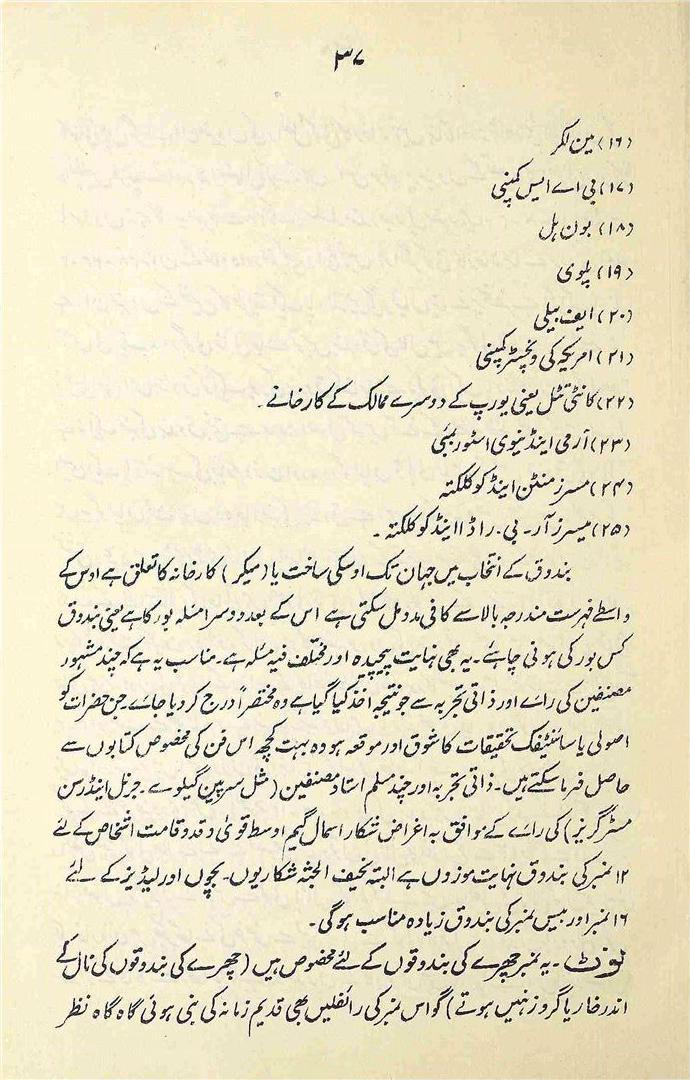 ۳۷
(۱۶) مین لکر
(۱۷) بی اے ایس کمپنی
(۱۸) بون ہل
(۱۹) پلوی
(۲۰) ایف بیلی
(۲۱) امریکہ کی ونچسٹر کمپنی
(۲۲) کانٹی نٹل یعنی یورپ کے دوسرے ممالک کے کارخانے۔
(۲۳) آرمی اینڈ نیوی اسٹور بمبئی
(۲۴) مسرز منٹن اینڈ کو کلکتہ
(۲۵) میسرز آر۔ بی۔ راڈا اینڈ کو کلکتہ۔
بندوق کے انتخاب میں جہان تک اوسکی ساخت یا (میکر) کارخانہ کا تعلق ہے اوس کے
واسطے فہرست مندرجہ بالا سے کافی مدد مل سکتی ہے اس کے بعد دوسرا مسئلہ بور کا ہے یعنی بندوق
کس بور کی ہونی چاہئے۔ یہ بھی نہایت پیچیدہ اور مختلف فیہ مسئلہ ہے۔ مناسب یہ ہے کہ چند مشہور
مصنفین کی رائے اور ذاتی تجربہ سے جو نتیجہ اخذ کیا گیا ہے وہ مختصراً درج کر دیا جائے۔ جن حضرات کو
اصولی یا سائنٹیفک تحقیقات کا شوق اور موقعہ ہو وہ بہت کچھ اس فن کی مخصوص کتابوں سے
حاصل فرما سکتے ہیں۔ ذاتی تجربہ اور چند مسلم استاد مصنفین (مثل سر پین گیلوے۔ جرنل اینڈرسن
مسٹر گرینر) کی رائے کے موافق بہ اغراض شکار اسمال گیم اوسط قویٰ و قد و قامت اشخاص کے لئے
۱۲ نمبر کی بندوق نہایت موزوں ہے البتہ نحیف الجثہ شکاریوں۔ بچوں اور لیڈیز کے لئے
۱۶ نمبر اور بیس نمبر کی بندوق زیادہ مناسب ہوگی۔
نوٹ۔ یہ نمبر چھرے کی بندوقوں کے لئے مخصوص ہیں (چھرے کی بندوقوں کی نال کے
اندر خار یا گروز نہیں ہوتے) گو اس نمبر کی رائفلیں بھی قدیم زمانہ کی بنی ہوئی گاہ گاہ نظر